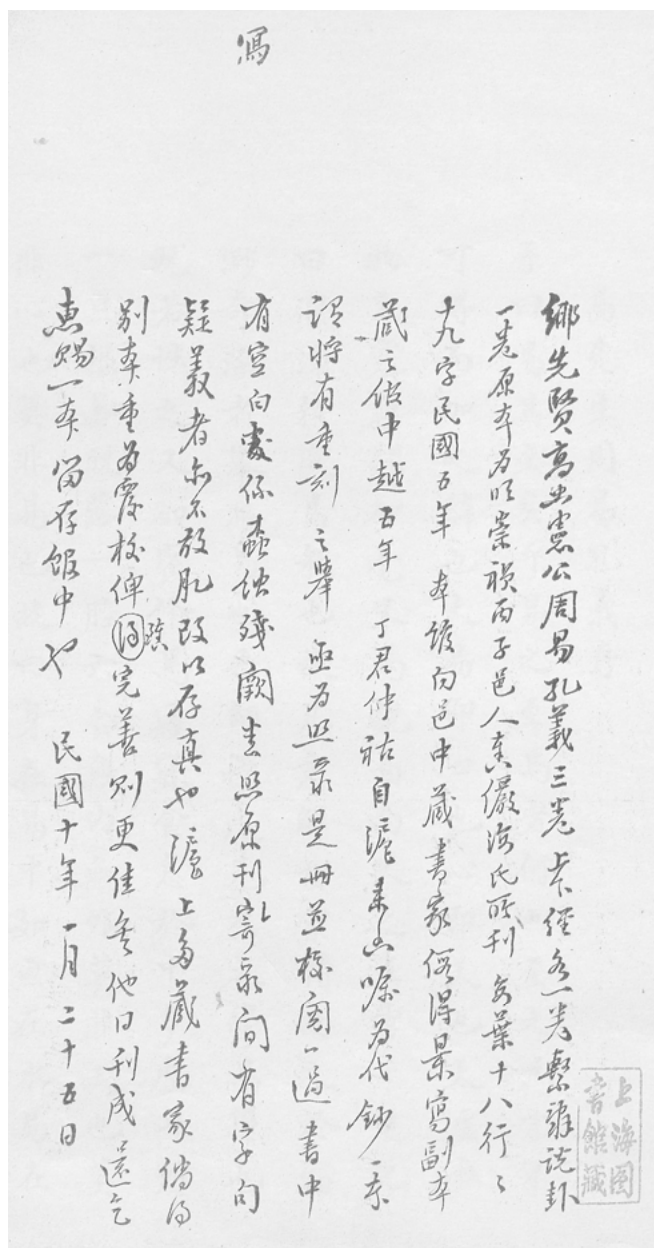 寫
鄉先賢高忠憲公周易孔義三卷上下經各一卷繫辭說卦
一卷原本為明崇禎丙子邑人秦儼海氏所刊每葉十八行行
十九字民國五年 本館向邑中藏書家假得景寫副本
藏之館中越五年 丁君仲祜自滬來函囑為代鈔一帙
謂將有重刻 之舉亟為照录是冊並校閱一過書中
有空白處係蠹蝕殘闕悉照原刊寫录間有字句
疑義者亦不敢肊改以存真也滬上多藏書家倘得
別本重為覆校俾臻完善則更佳矣他日刊成還乞
惠賜一本留存館中也 民國十年一月二十五日
上海圖
書館藏